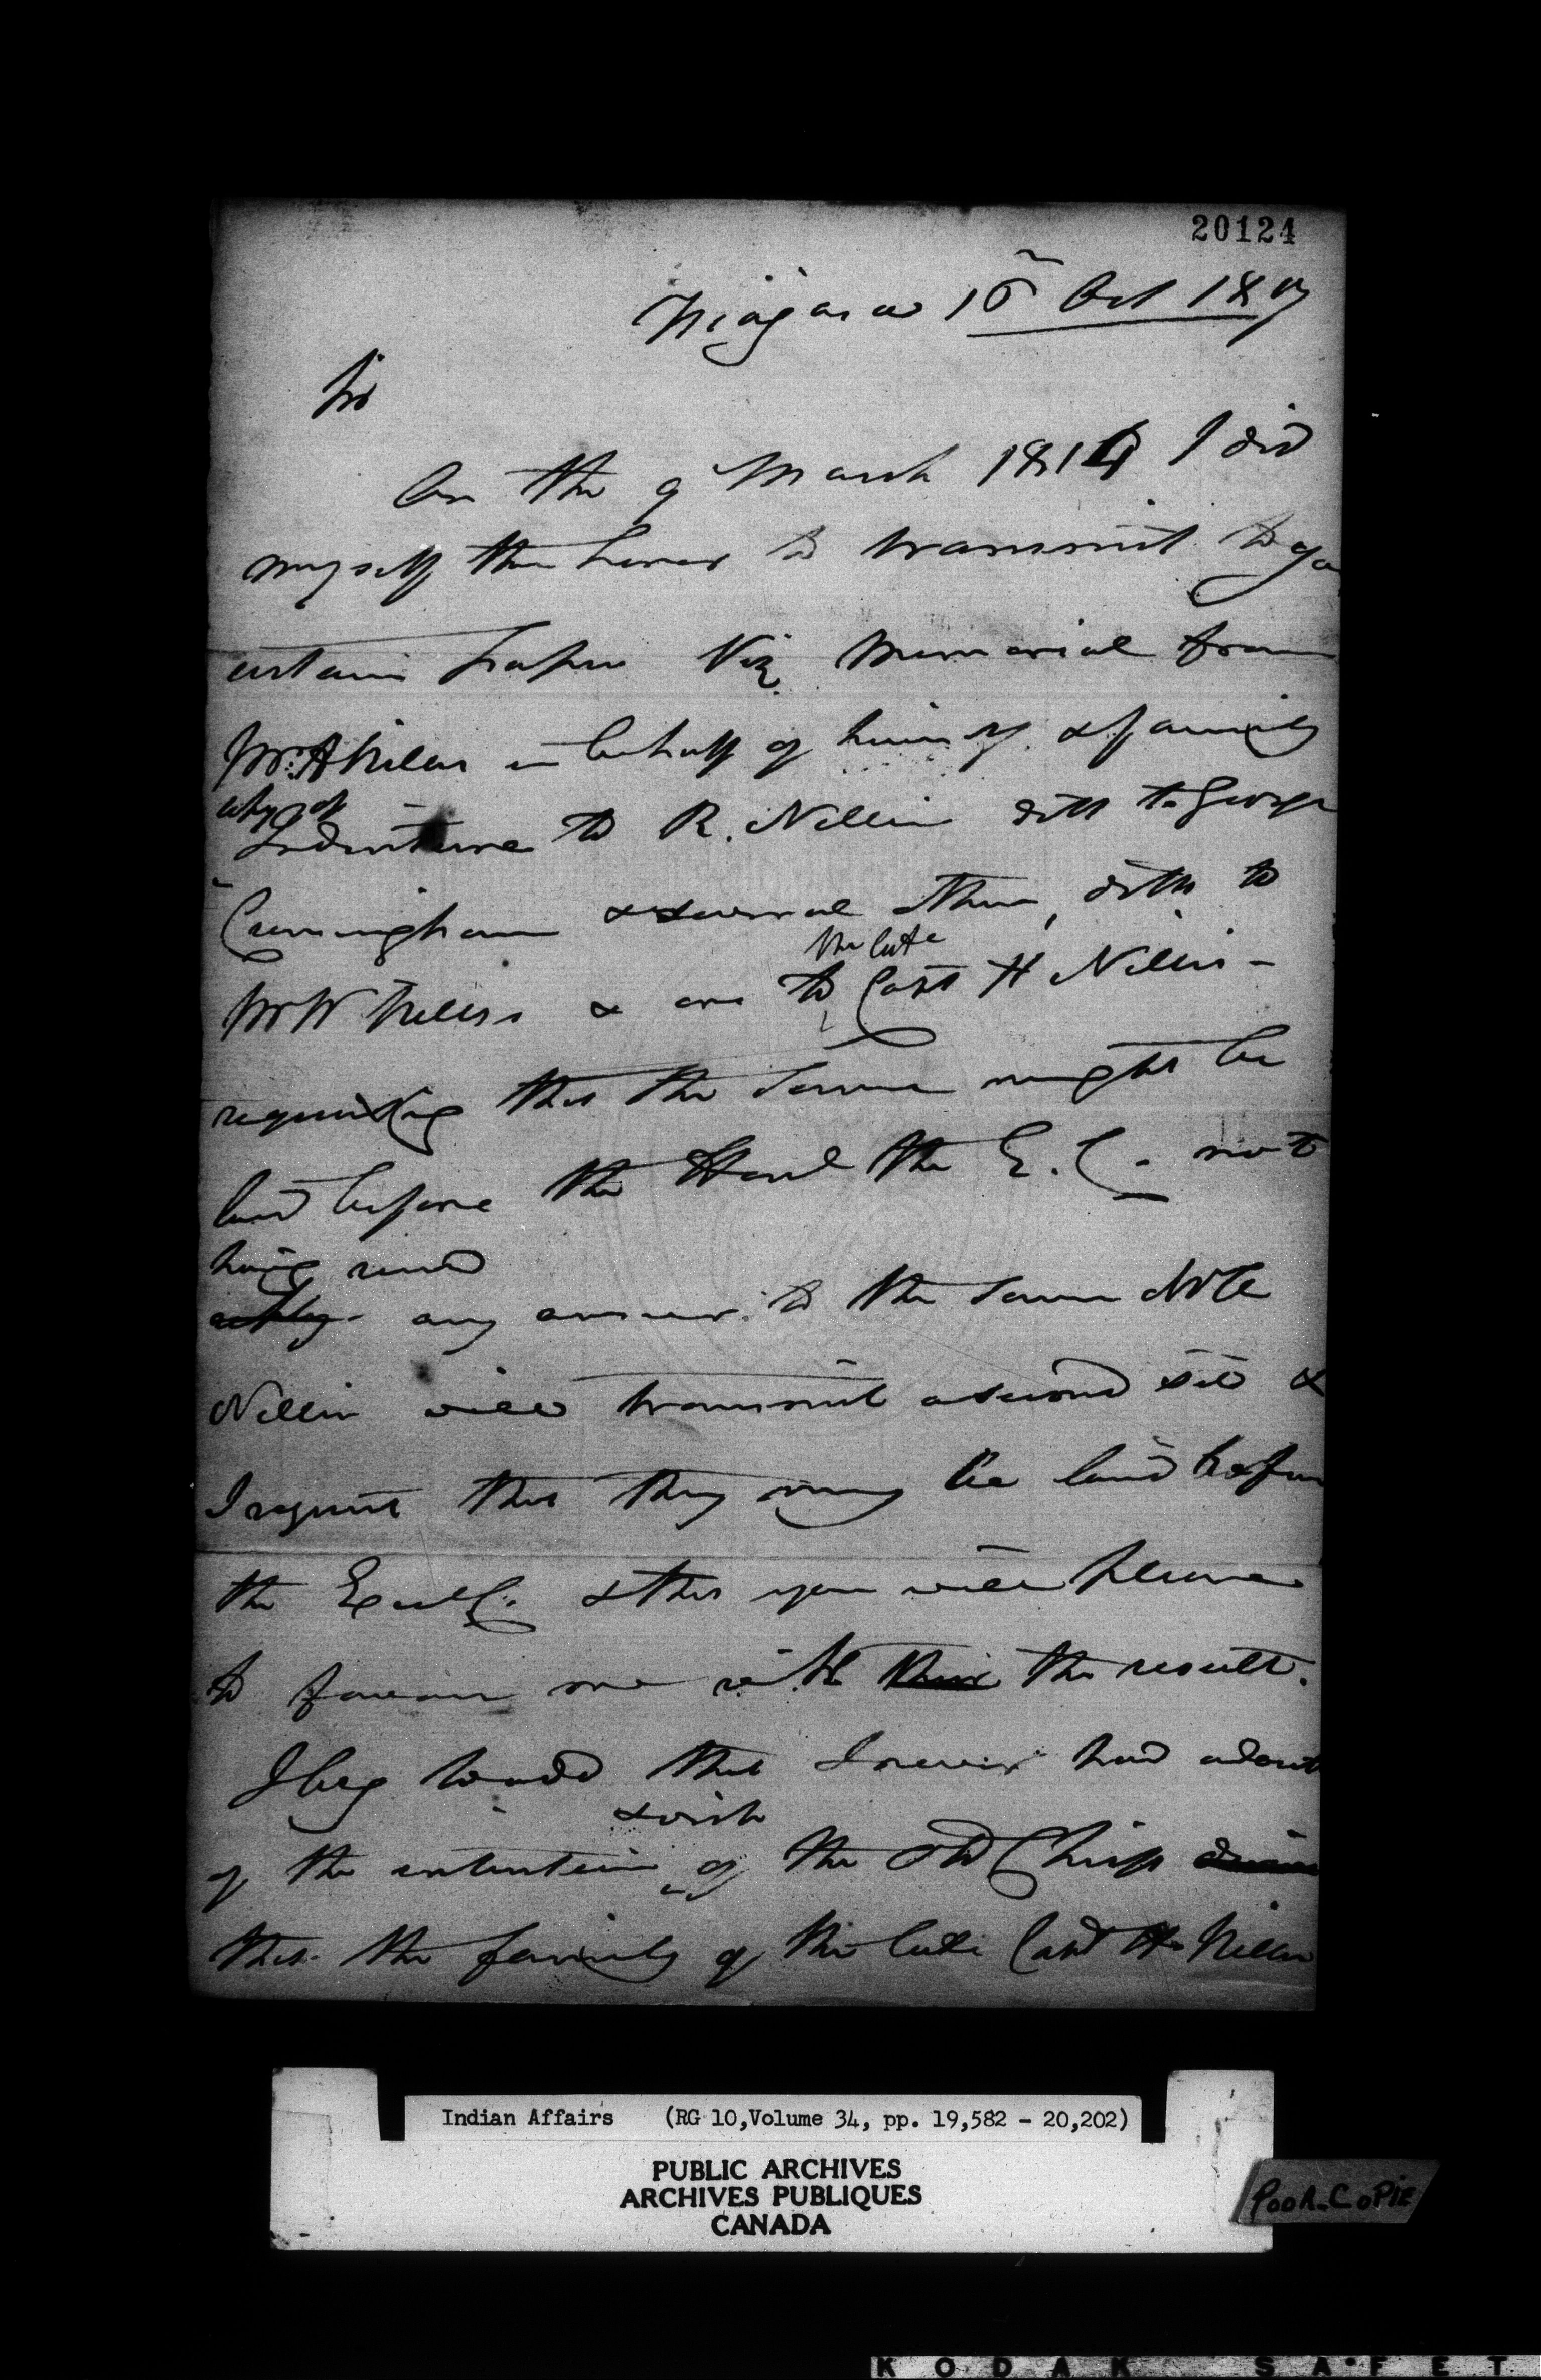 20124
Niagara 16 Oct 18
Sir
On the 9 March 1814 I did
myself the honor to transmit to you
certain papers Viz Memorial from
Mr A Nelles in behalf of himself & family
Copy of
Indenture to R. Nellis ditto to George
Cunningham & several others, ditto to
the late
Mr W Nelles & one to Capt H Nelles -
requesting that the Same might be
laid before the Honl the E. C. not
having recd
any answer to the Same Mr
Nelles will transmit a second set &
I request that they may be laid before
the Exec C. & that you will please
to favour me with the result.
I beg to add that I never had a doubt
& wish
of the intention of the old Chiefs
that the family of the late Capt H Nelles
Indian Affairs (RG 10, Volume 34, pp. 19,582 - 20,202)
PUBLIC ARCHIVES
ARCHIVES PUBLIQUES
CANADA
POOR COPIE
KODAK SAFET